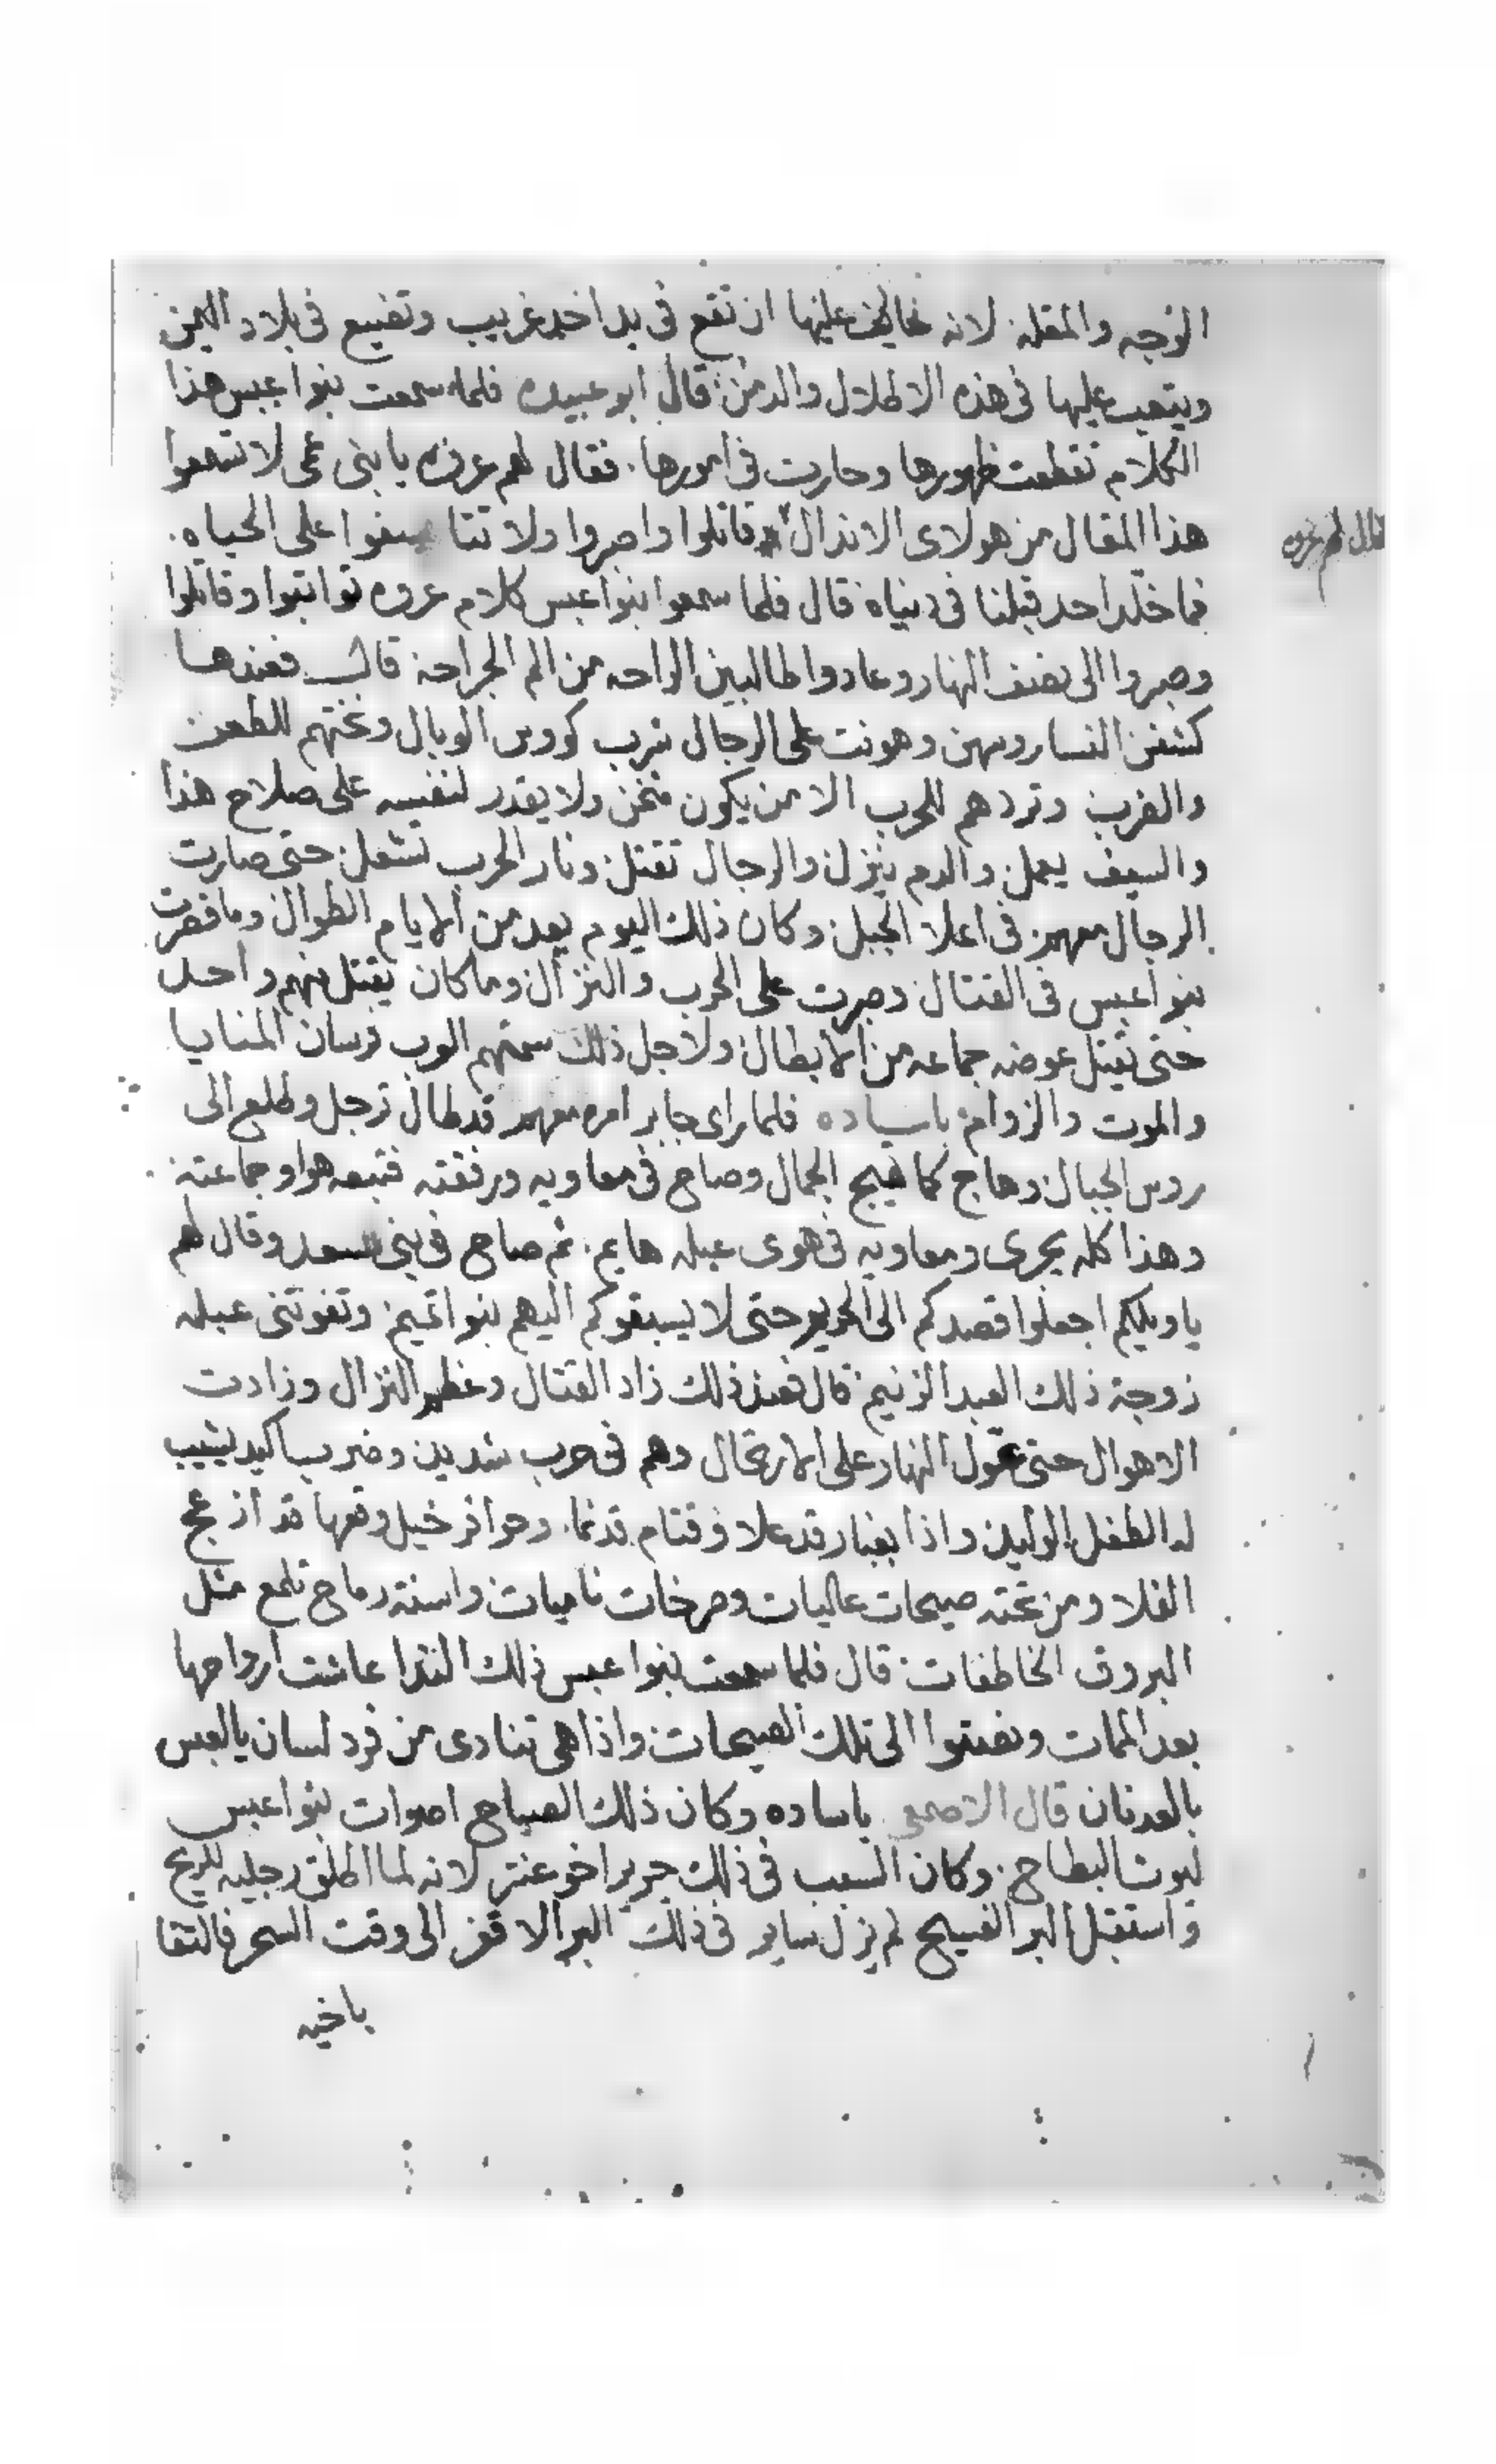 الوجه والمقله لانه خايف عليها ان تقع في يد احد غريب وتضيع في بلاد اليمن
ويتعب عليها في هذه الاطلال والدمن قال ابو عبيده فلما سمعت بنوا عبس هذا
الكلام تقطعت ظهورها وحارت في امورها فقال لهم عروه يا بني عمي لا تسمعوا
هذا المقال من هولاى الاندال قاتلوا واصبروا ولا تتاسفوا على الحياه
قال لهم عروه
فما خلد احد قبلنا في دنياه قال فلما سمعوا بنوا عبس كلام عروه تواثبوا وقاتلوا
وصبروا الى نصف النهار وعادوا طالبين الراحه من الم الجراحه قال فعندها
كشفن النسا روسهن وهونت على الرجال شرب كووس الوبال ونختهم للطعن
والضرب وتردهم للحرب الا من يكون مثخن ولا يقدر لنفسه على صلاح هذا
والسيف يعمل والدم ينزل والرجال تقتل ونار الحرب تشعل حتى صارت
الرجال معهم في اعلا الجبل وكان ذلك اليوم يعد من الايام الطوال وما قصرت
بنوا عبس في القتال وصبرت على الحرب والنزال وما كان يقتل منهم واحد
حتى تقتل عوضه جماعه من الابطال ولاجل ذلك سمتهم العرب فرسان المنايا
والموت والزوام ياساده فلما راى جابر امره معهم قد طال ترجل وطلع الى
روس الجبال وهاج كما تهيج الجمال وصاح في معاويه ورفقته فتبعه هوا وجماعته
وهذا كله يجرى ومعاويه في هوى عبله هايم ثم صاح في بني السعد وقال لهم
يا ويلكم اجعلوا قصدكم الى الحريم حتى لا يسبقوكم اليهم بنوا تميم وتفوتني عبله
زوجة ذلك العبد الزنيم قال فعند ذلك زاد القتال وعظم النزال وزادت
الاهوال حتى عول النهار على الارتحال وهم في حرب شديد وضرب اكيد يشيب
له الطفل الوليد واذا بغبار قد علا وقتام قد نما وحوافر خيل وقعها قد ازعج
الفلا ومن تحته صيحات عاليات وصرخات ناميات واسنة رماح تلمع مثل
البروق الخاطفات قال فلما سمعت بنوا عبس ذلك الندا عاشت ارواحها
بعد الممات ونصتوا الى تلك الصيحات واذا هي تنادى من فرد لسان يالعبس
يالعدنان قال الاصمعي ياساده وكان ذلك الصياح اصوات بنوا عبس
ليوث البطاح وكان السبب في ذلك جرير اخو عنتر لانه لما اطلق رجليه للريح
واستقبل البر الفسيح لم يزل ساير في ذلك البر الاقفر الى وقت السحر فالتقا
باخيه